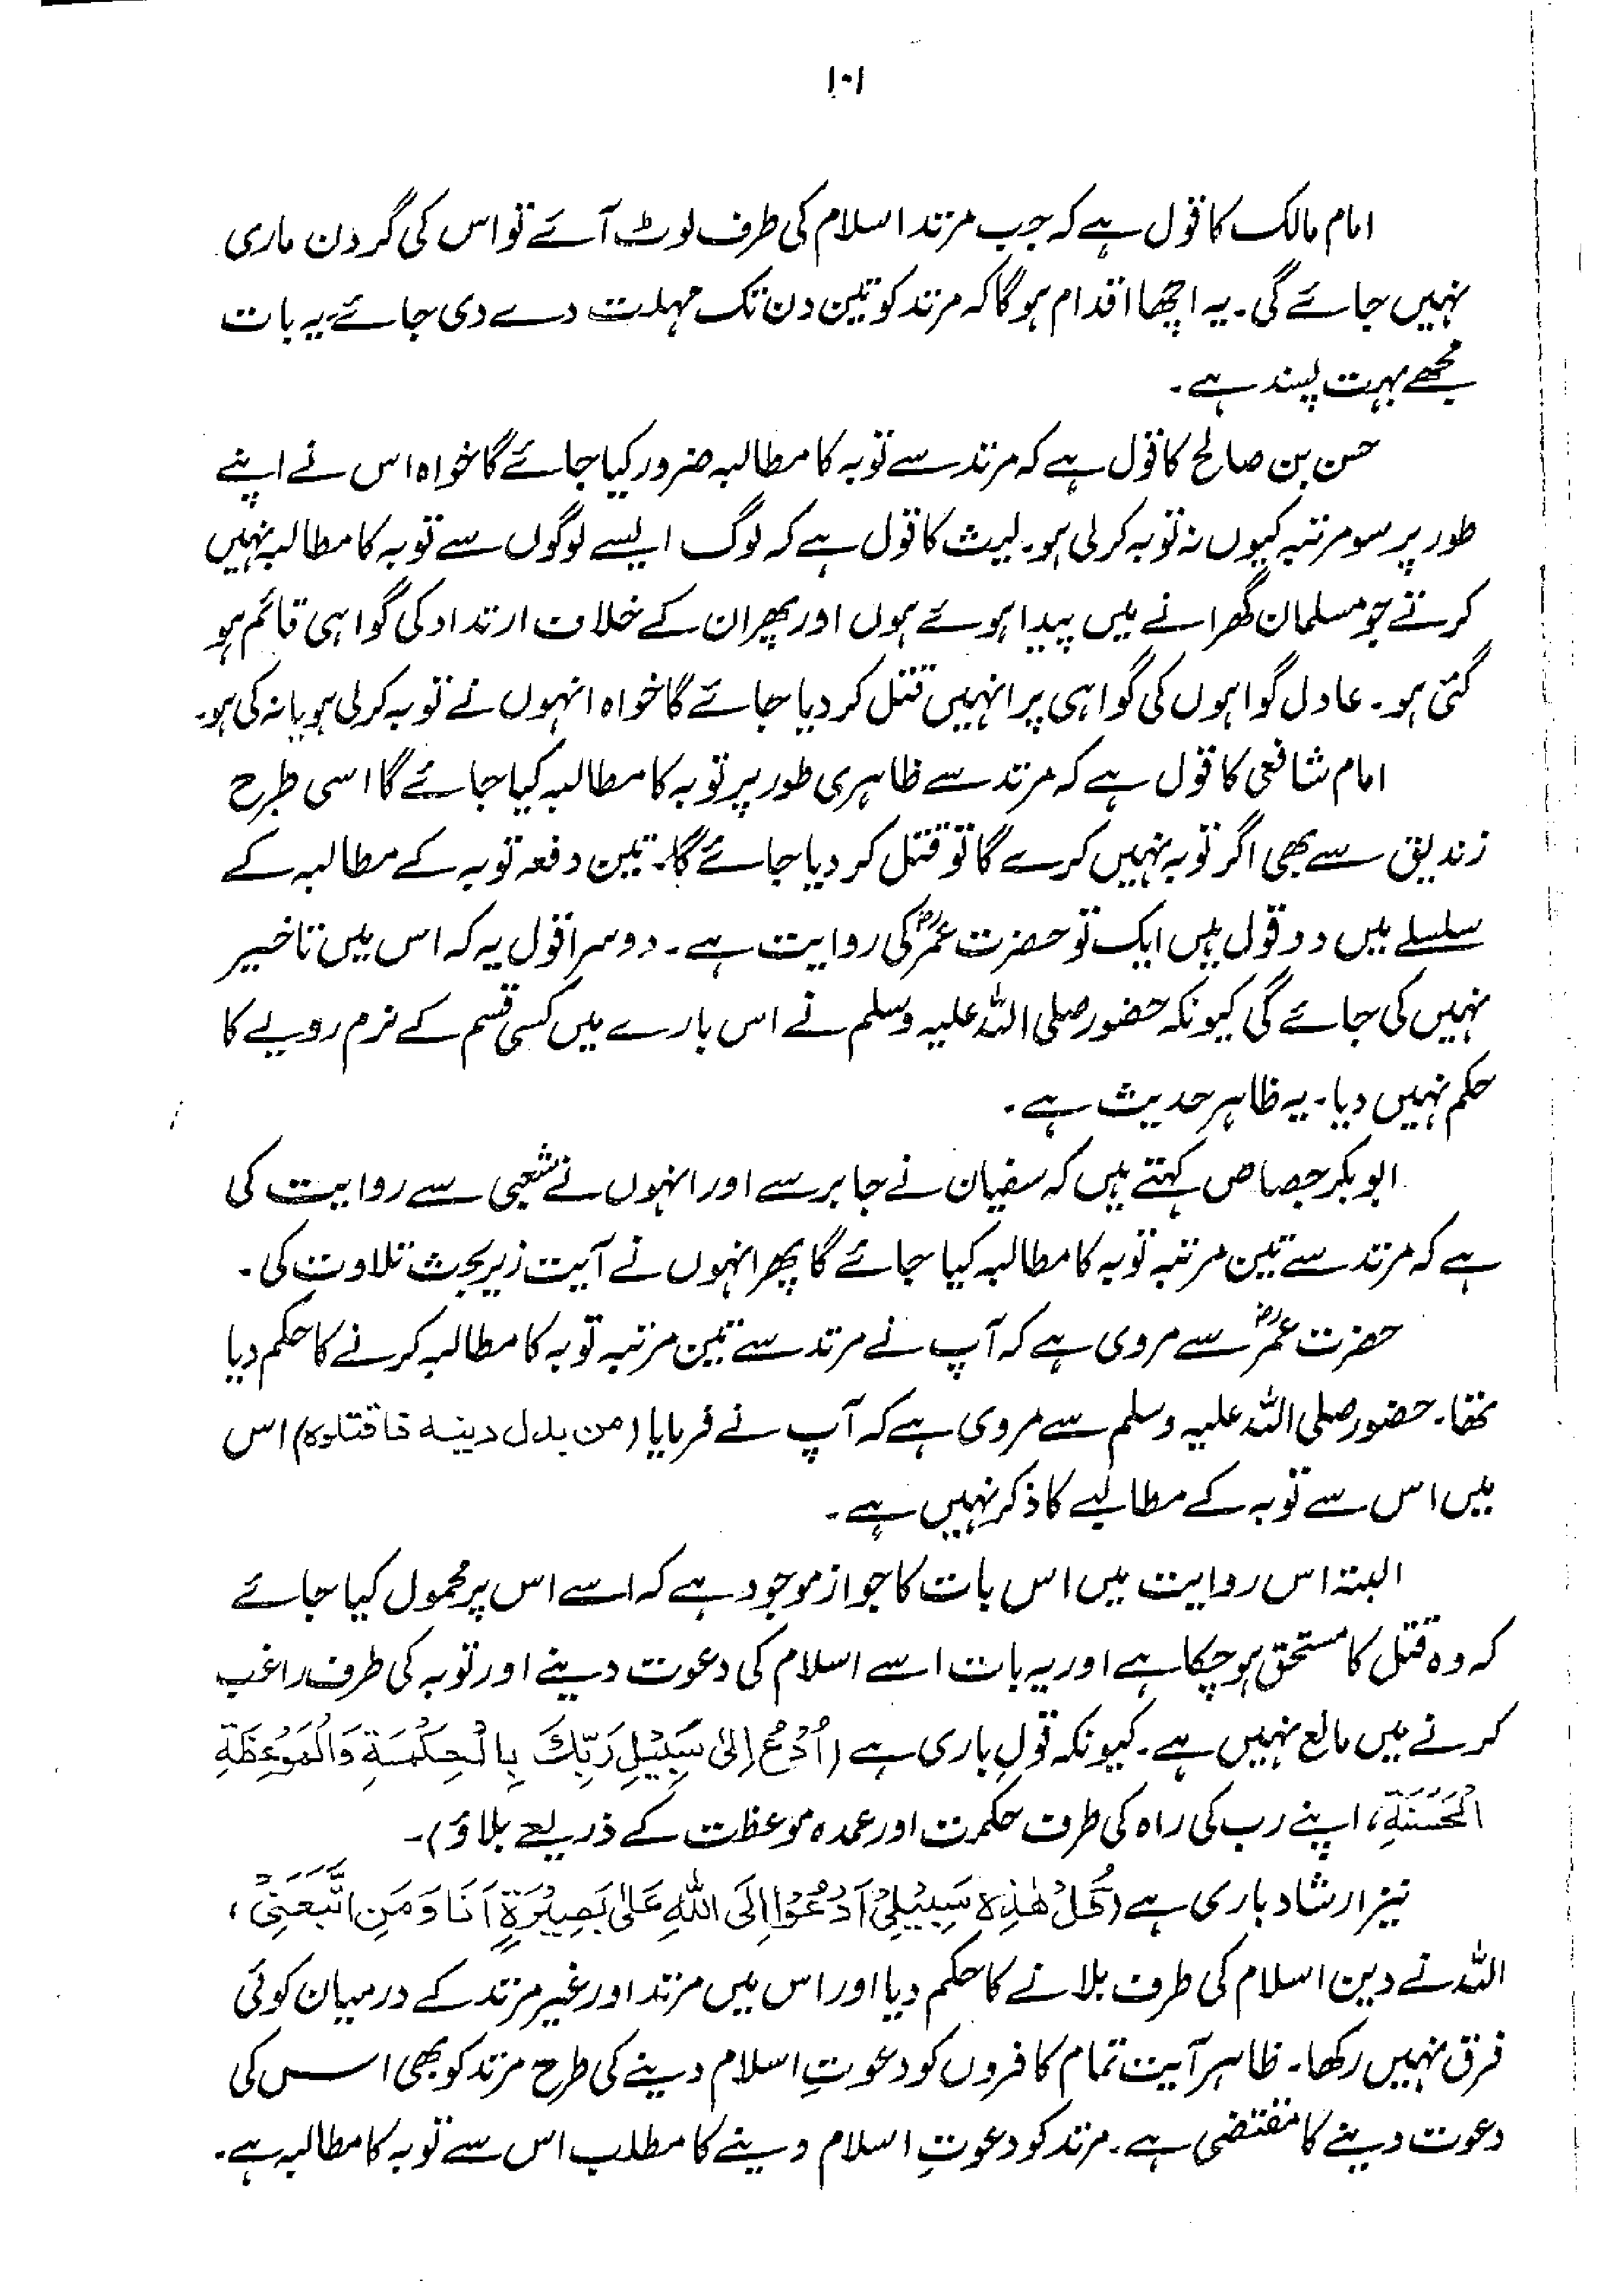 ۱۰۱
امام مالک کا قول ہے کہ جب مرتد اسلام کی طرف لوٹ آئے تو اس کی گردن ماری
نہیں جائے گی۔ یہ اچھا اقدام ہوگا کہ مرتد کو تین دن تک مہلت دے دی جائے۔ یہ بات
مجھے بہت پسند ہے۔
حسن بن صالح کا قول ہے کہ مرتد سے توبہ کا مطالبہ ضرور کیا جائے گا خواہ اس نے اپنے
طور پر سو مرتبہ کیوں نہ توبہ کرلی ہو۔ لیث کا قول ہے کہ لوگ ایسے لوگوں سے توبہ کا مطالبہ نہیں
کرتے جو مسلمان گھرانے میں پیدا ہوئے ہوں اور پھر ان کے خلاف ارتداد کی گواہی قائم ہو
گئی ہو۔ عادل گواہوں کی گواہی پر انہیں قتل کردیا جائے گا خواہ انہوں نے توبہ کرلی ہو یا نہ کی ہو۔
امام شافعی کا قول ہے کہ مرتد سے ظاہری طور پر توبہ کا مطالبہ کیا جائے گا اسی طرح
زندیق سے بھی اگر توبہ نہیں کرے گا تو قتل کردیا جائے گا۔ تین دفعہ توبہ کے مطالبہ کے
سلسلے میں دو قول ہیں ایک تو حضرت عمرؓ کی روایت ہے۔ دوسرا قول یہ کہ اس میں تاخیر
نہیں کی جائے گی کیونکہ حضور صلی اللہ علیہ وسلم نے اس بارے میں کسی قسم کے نرم رویے کا
حکم نہیں دیا۔ یہ ظاہر حدیث ہے۔
ابوبکر جصاص کہتے ہیں کہ سفیان نے جابر سے اور انہوں نے شعبی سے روایت کی
ہے کہ مرتد سے تین مرتبہ توبہ کا مطالبہ کیا جائے گا پھر انہوں نے آیت زیر بحث تلاوت کی۔
حضرت عمرؓ سے مروی ہے کہ آپ نے مرتد سے تین مرتبہ توبہ کا مطالبہ کرنے کا حکم دیا
تھا۔ حضور صلی اللہ علیہ وسلم سے مروی ہے کہ آپ نے فرمایا (من بدل دینہ فاقتلوہ) اس
میں اس سے توبہ کے مطالبے کا ذکر نہیں ہے۔
البتہ اس روایت میں اس بات کا جواز موجود ہے کہ اسے اس پر محمول کیا جائے
کہ وہ قتل کا مستحق ہو چکا ہے اور یہ بات اسے اسلام کی دعوت دینے اور توبہ کی طرف راغب
کرنے میں مانع نہیں ہے۔ کیونکہ قولِ باری ہے (اُدْعُ اِلیٰ سَبِیْلِ رَبِّکَ بِالْحِکْمَۃِ وَالْمَوْعِظَۃِ
الْحَسَنَۃِ، اپنے رب کی راہ کی طرف حکمت اور عمدہ موعظت کے ذریعے بلاؤ)۔
نیز ارشاد باری ہے (قُلْ ھٰذِہٖ سَبِیْلِیْ اَدْعُوْا اِلَی اللّٰہِ عَلیٰ بَصِیْرَۃٍ اَنَا وَمَنِ اتَّبَعَنِیْ،
اللہ نے دین اسلام کی طرف بلانے کا حکم دیا اور اس میں مرتد اور غیر مرتد کے درمیان کوئی
فرق نہیں رکھا۔ ظاہر آیت تمام کافروں کو دعوتِ اسلام دینے کی طرح مرتد کو بھی اس کی
دعوت دینے کا مقتضی ہے۔ مرتد کو دعوتِ اسلام دینے کا مطلب اس سے توبہ کا مطالبہ ہے۔